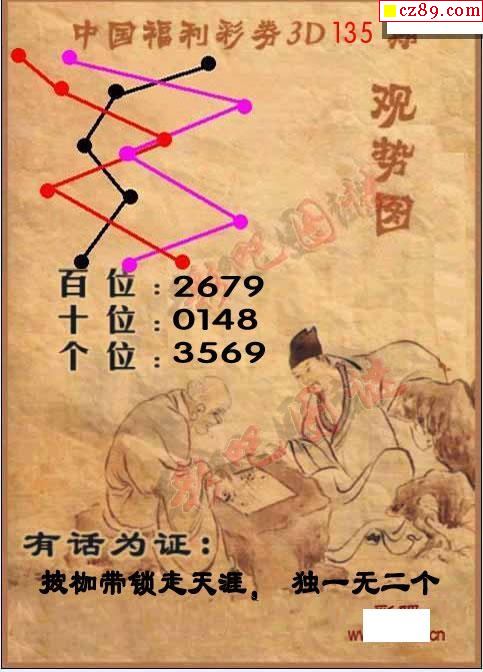 cz89.com
中国福利彩券3D 135 期
观势图
彩吧图谜
百位：2679
十位：0148
个位：3569
彩吧图谜
有话为证：
披枷带锁走天涯。 独一无二个
彩吧
www
.cn